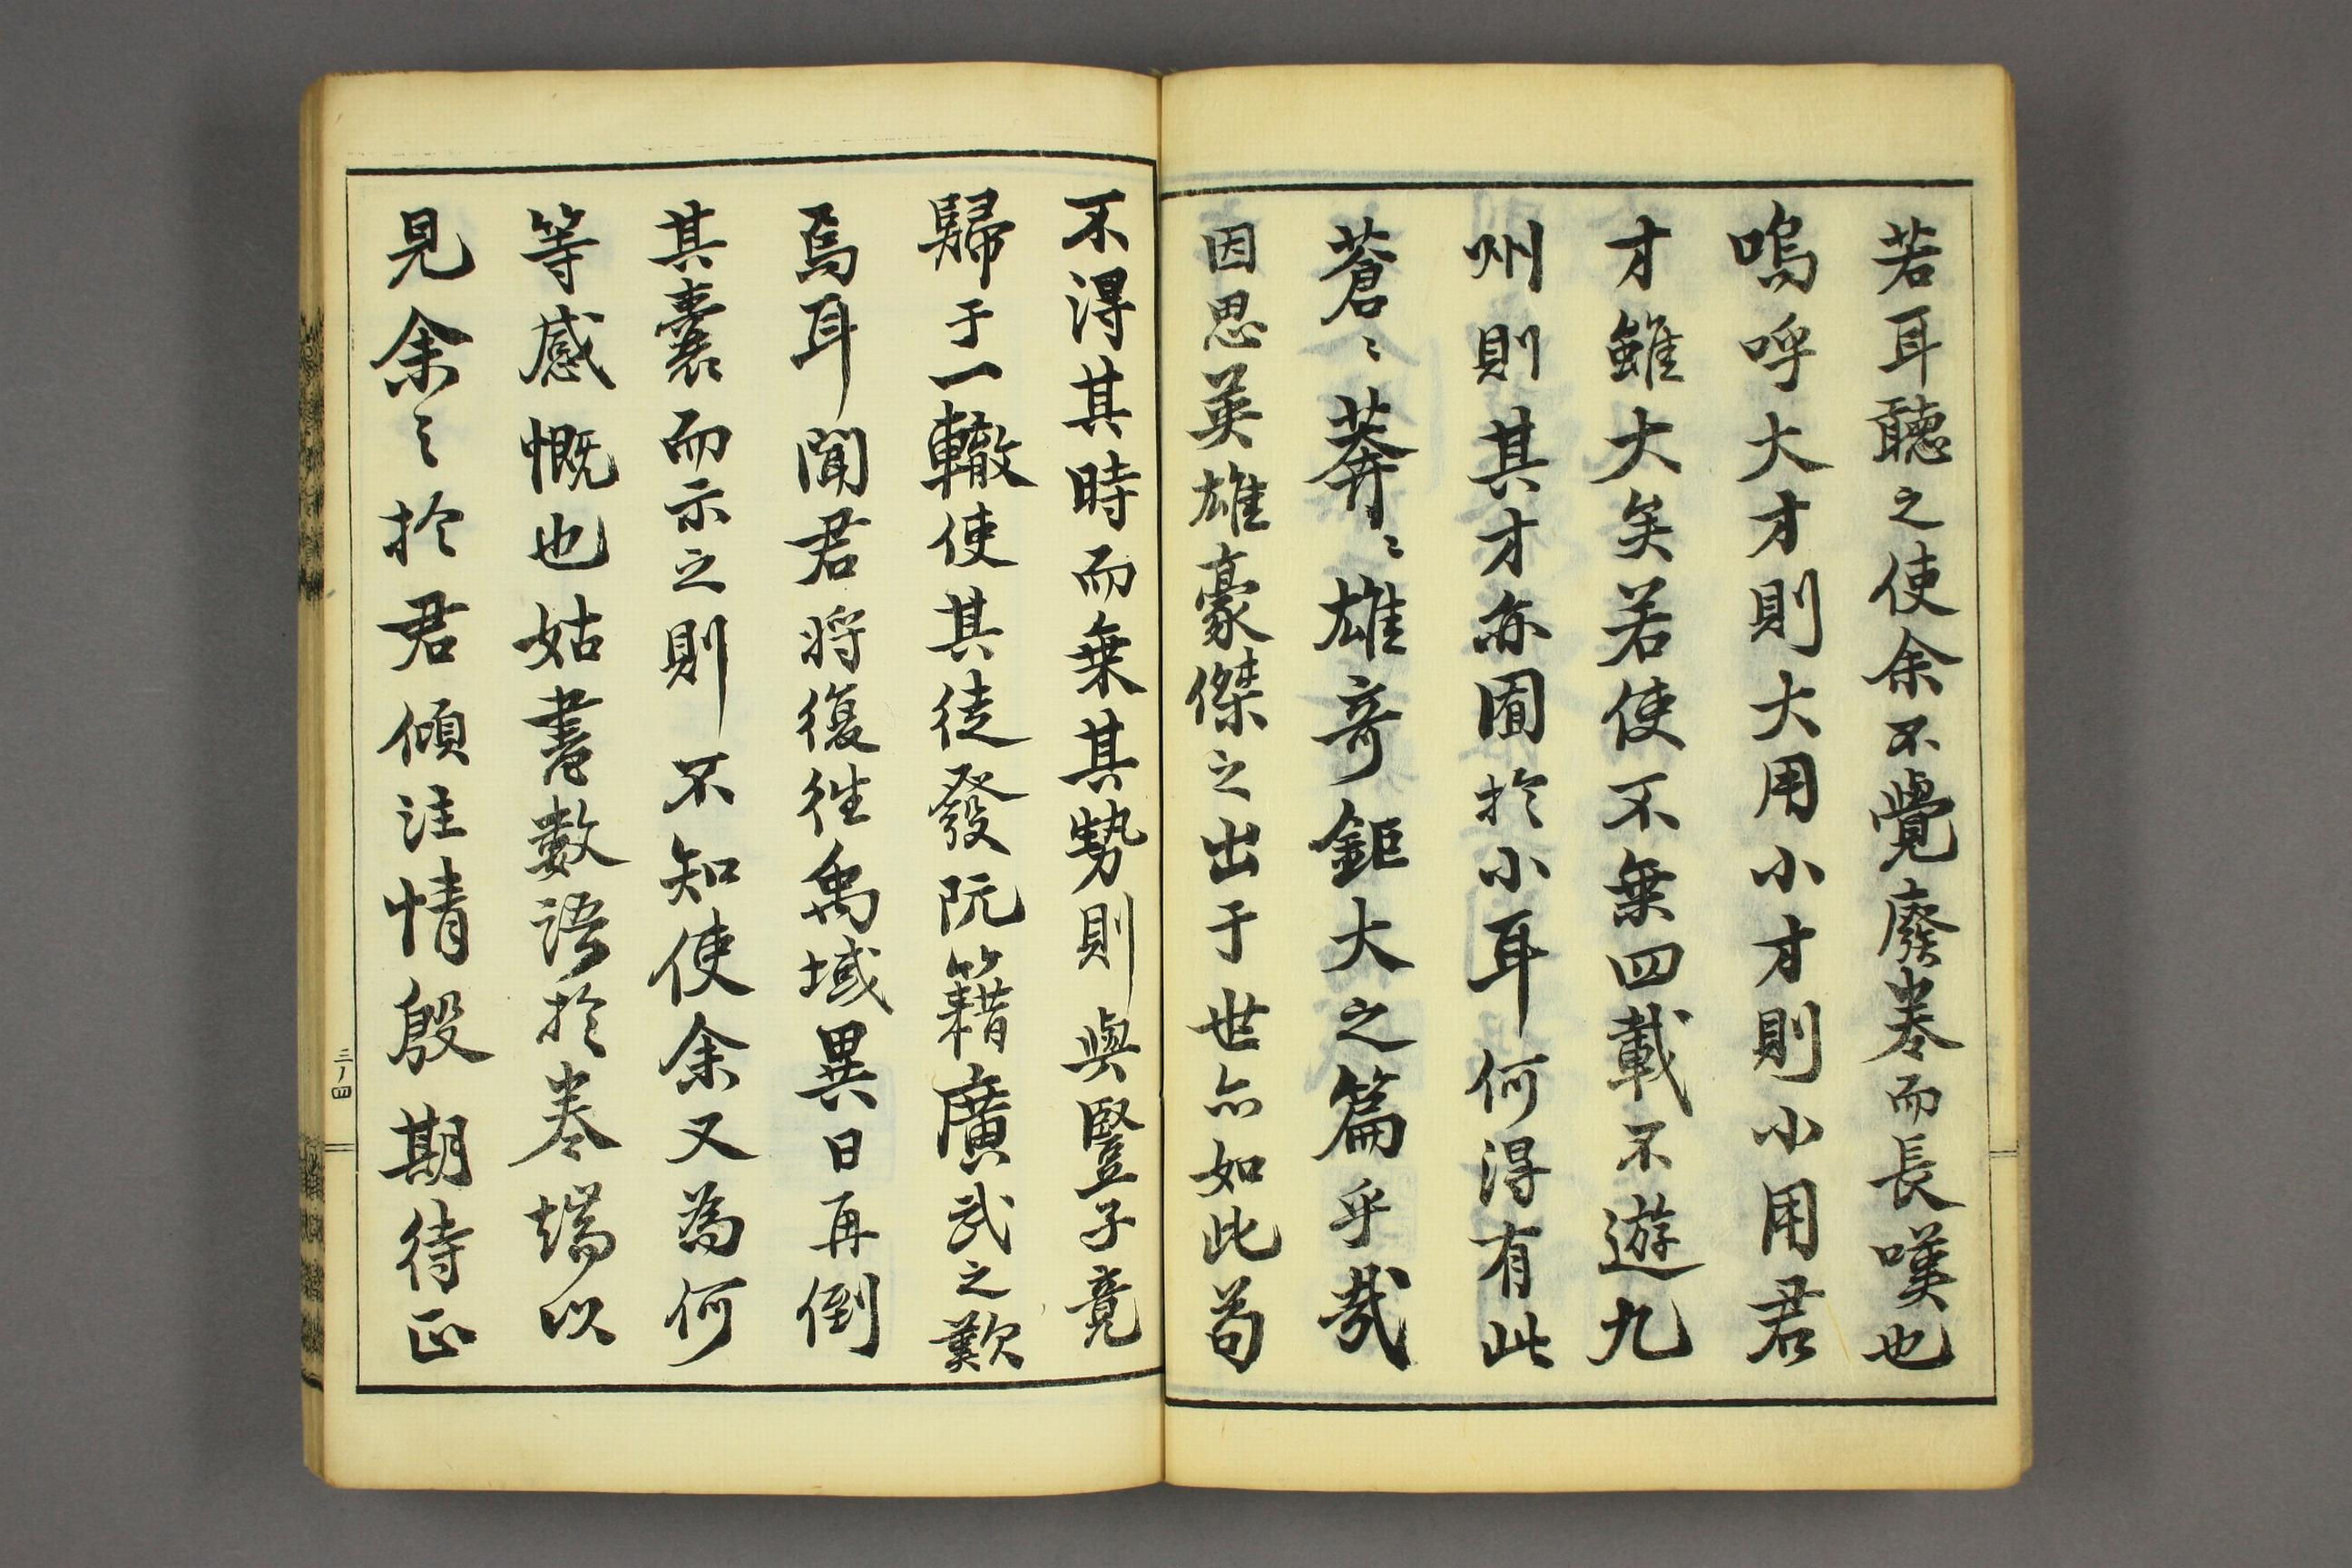 若耳聽之使余不覺廢卷而長嘆也
嗚呼大才則大用小才則小用君
才雖大矣若使不乗四載不遊九
州則其才亦囿於小耳何得有此
蒼〻莽〻雄奇鉅大之篇乎哉
因思英雄豪傑之出于世亦如此苟
不得其時而乗其勢則與豎子竟
歸于一轍使其徒發阮籍廣武之歎
焉耳聞君将復徃禹域異日再倒
其囊而示之則不知使余又為何
等感慨也姑書數語於卷端以
見余之於君傾注情殷期待正
三ノ四